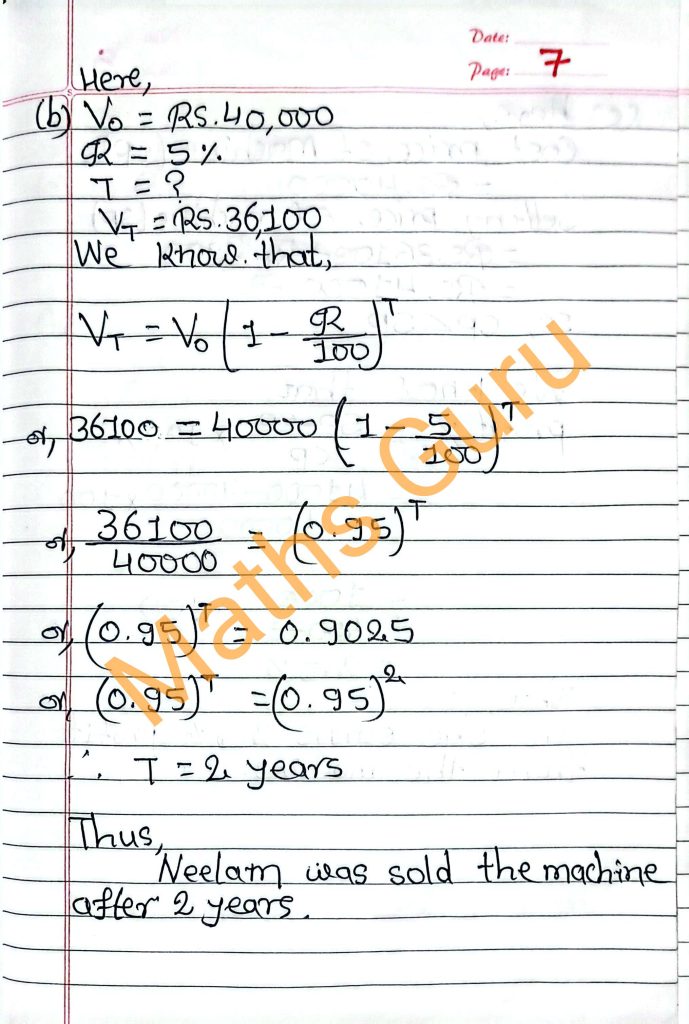 Date:
Page: 7
Here,
(b) V₀ = RS. 40,000
R = 5 %
T = ?
V_T = RS. 36,100
We know that,
V_T = V₀ (1 - R/100)^T
or, 36100 = 40000 (1 - 5/100)^T
or, 36100/40000 = (0.95)^T
or, (0.95)^T = 0.9025
or, (0.95)^T = (0.95)²
∴ T = 2 years
Thus,
Neelam was sold the machine
after 2 years.
Maths Guru